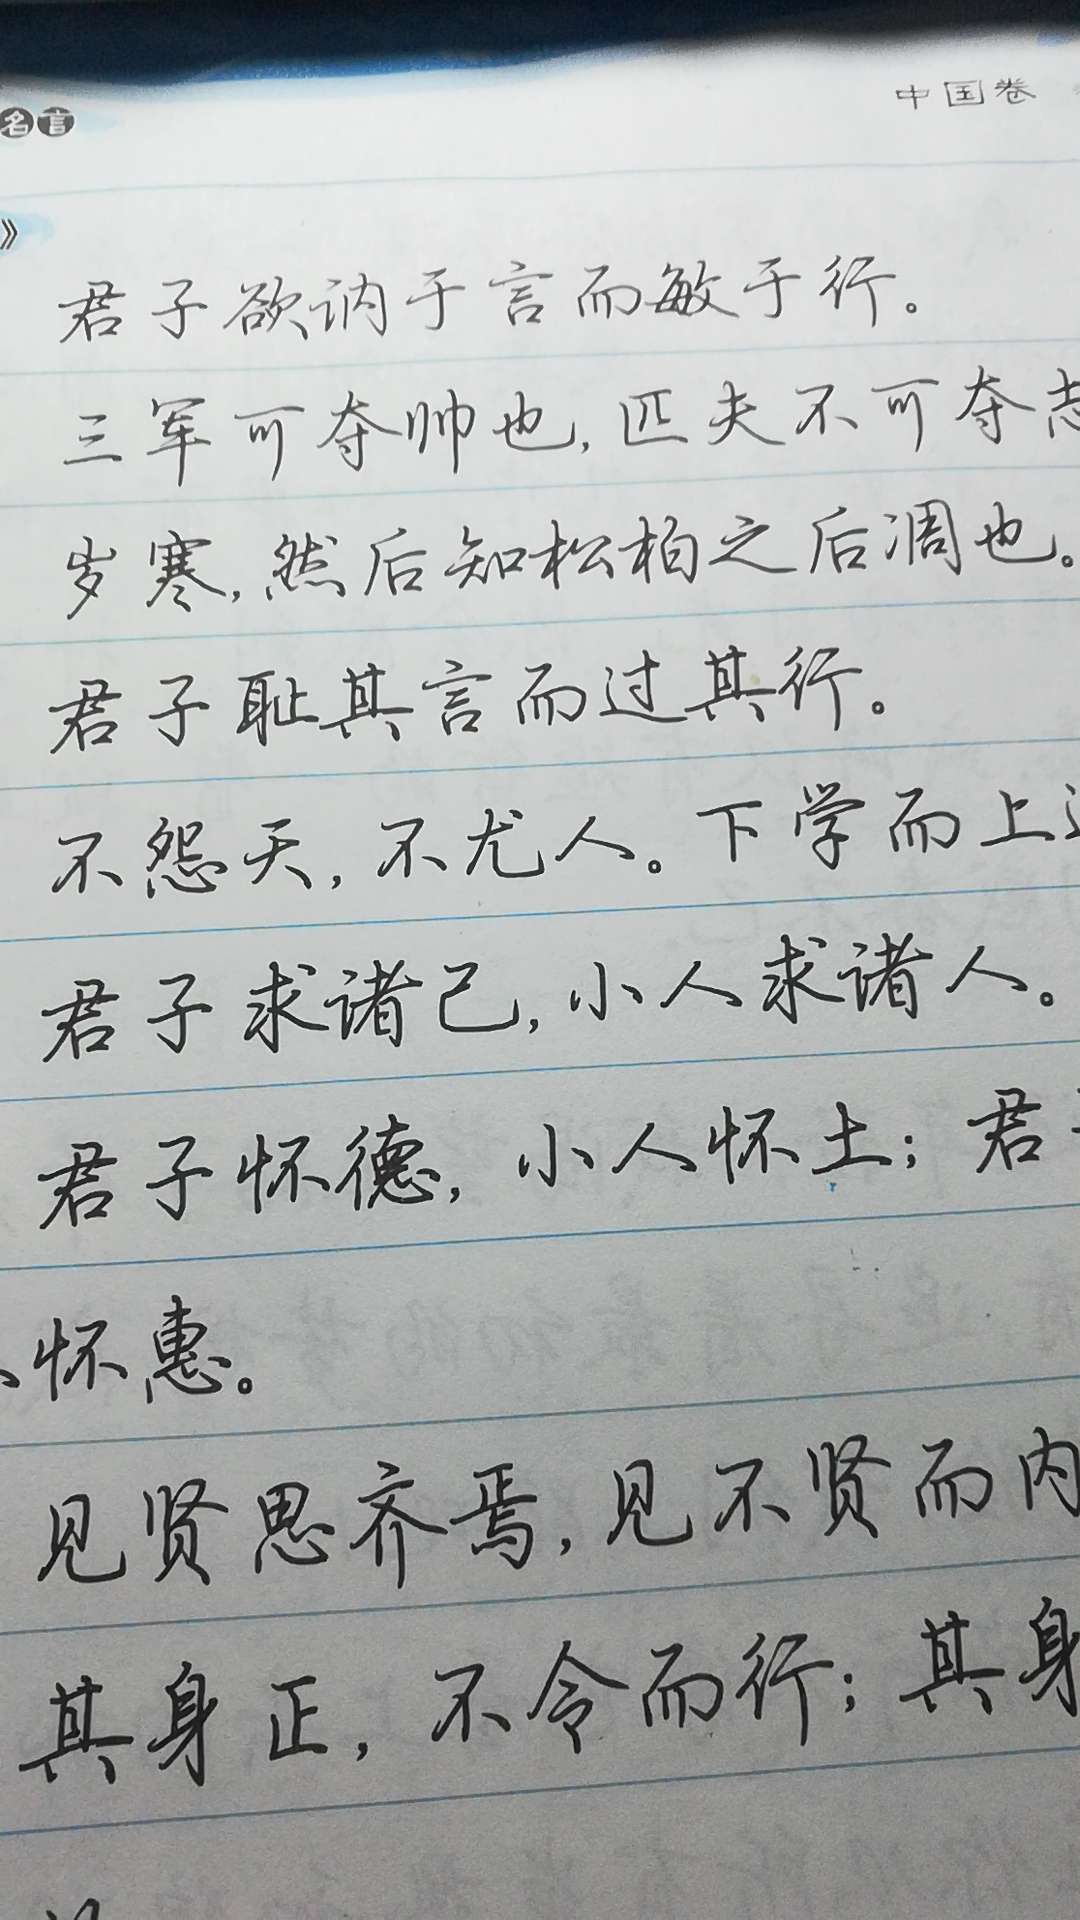 名言
中国卷
》
君子欲讷于言而敏于行。
三军可夺帅也,匹夫不可夺志
岁寒,然后知松柏之后凋也。
君子耻其言而过其行。
不怨天,不尤人。下学而上
君子求诸己,小人求诸人。
君子怀德,小人怀土;君
怀惠。
见贤思齐焉,见不贤而内
其身正,不令而行;其身